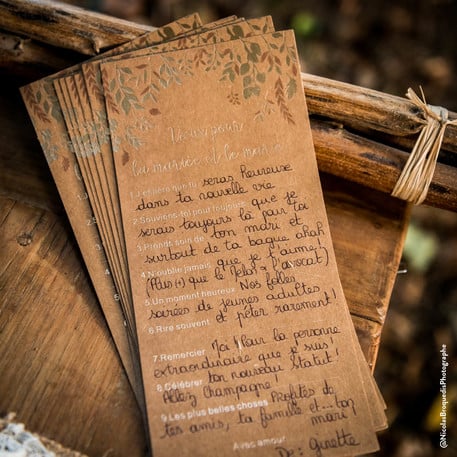 Vœux pour
la mariée et le marié
1. J'espère que tu seras heureuse
dans ta nouvelle vie
2. Souviens-toi pour toujours que je
serais toujours là pour toi
3. Prends soin de ton mari et
surtout de ta bague ahah
4. N'oublie jamais que je t'aime!
(Plus (+) que le Pelat à l'avocat)
5. Un moment heureux Nos folles
soirées de jeunes adultes
6. Rire souvent et péter rarement!
7. Remercier Moi! Pour la personne
extraordinaire que je suis!
8. Célébrer ton nouveau statut!
Allez Champagne!
9. Les plus belles choses Profites de
tes amis, ta famille et... ton
mari
Avec amour
De: Ginette
@NicolasBroquedisPhotographe